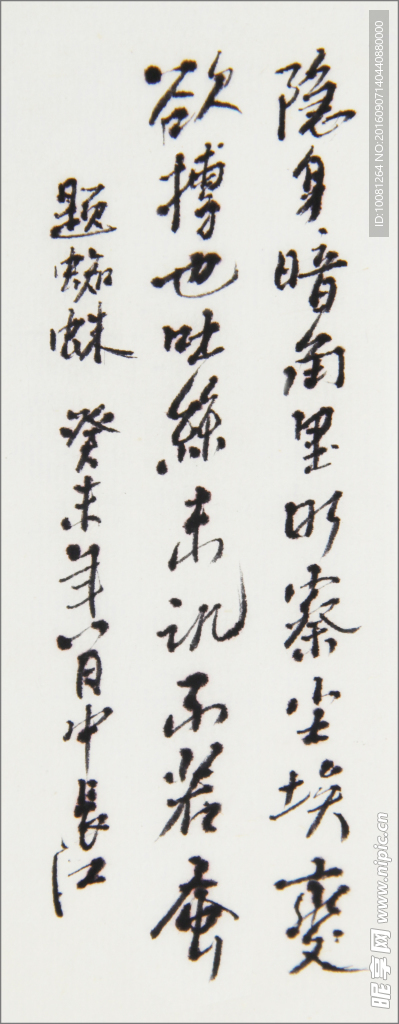 隐身暗角里明察尘埃变
欲搏也吐絲未讥不若蚕
题蜘蛛 癸未年八月中長江
ID:10081264 NO:20160907140440880000
昵享网 www.nipic.cn